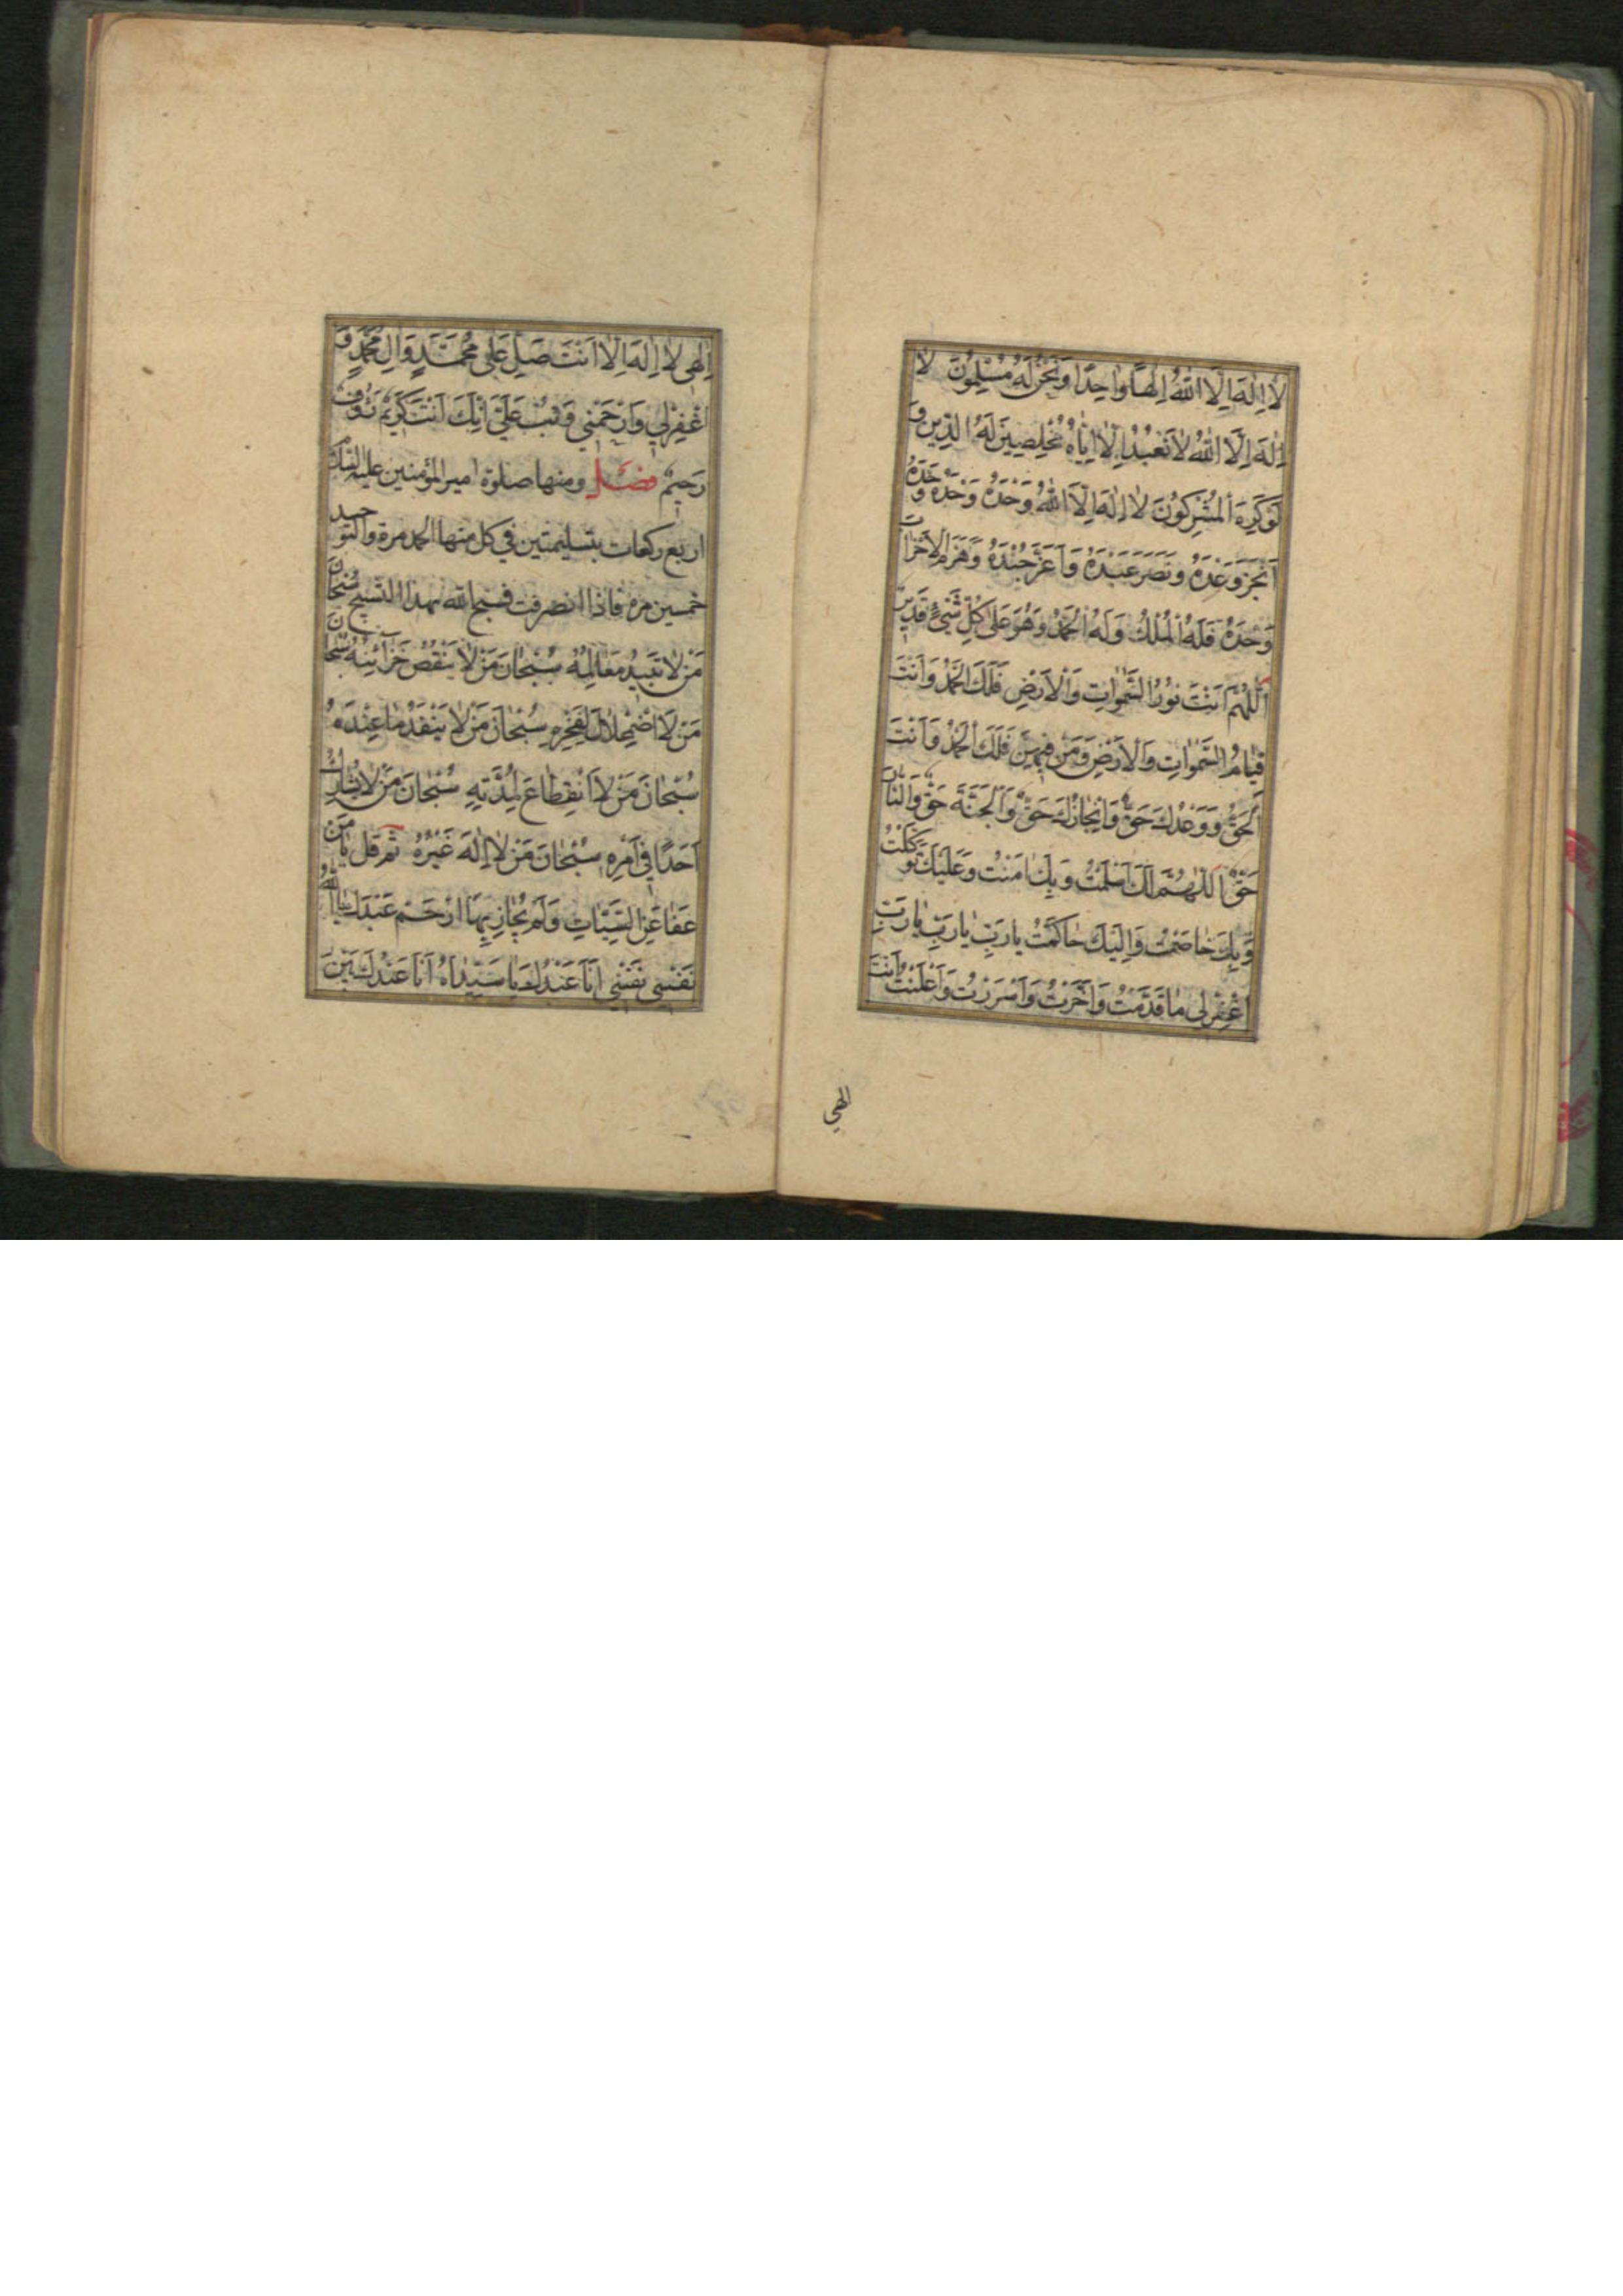 لَا اِلٰهَ اِلَّا اللّٰهُ اِلٰهًا وَاحِدًا وَنَحْنُ لَهُ مُسْلِمُونَ لَا
اِلٰهَ اِلَّا اللّٰهُ لَا نَعْبُدُ اِلَّا اِيَّاهُ مُخْلِصِينَ لَهُ الدِّينَ وَ
لَوْ كَرِهَ الْمُشْرِكُونَ لَا اِلٰهَ اِلَّا اللّٰهُ وَحْدَهُ وَحْدَهُ وَحْدَهُ
اَنْجَزَ وَعْدَهُ وَنَصَرَ عَبْدَهُ وَاَعَزَّ جُنْدَهُ وَهَزَمَ الْاَحْزَابَ
وَحْدَهُ فَلَهُ الْمُلْكُ وَلَهُ الْحَمْدُ وَهُوَ عَلٰى كُلِّ شَيْءٍ قَدِيرٌ
اَللّٰهُمَّ اَنْتَ نُورُ السَّمٰوَاتِ وَالْاَرْضِ فَلَكَ الْحَمْدُ وَاَنْتَ
قَيَّامُ السَّمٰوَاتِ وَالْاَرْضِ وَمَنْ فِيهِنَّ فَلَكَ الْحَمْدُ وَاَنْتَ
الْحَقُّ وَوَعْدُكَ حَقٌّ وَاِنْجَازُكَ حَقٌّ وَالْجَنَّةُ حَقٌّ وَالنَّارُ
حَقٌّ اَللّٰهُمَّ لَكَ اَسْلَمْتُ وَبِكَ اٰمَنْتُ وَعَلَيْكَ تَوَكَّلْتُ
وَبِكَ خَاصَمْتُ وَاِلَيْكَ حَاكَمْتُ يَا رَبِّ يَا رَبِّ يَا رَبِّ
اغْفِرْ لِي مَا قَدَّمْتُ وَاَخَّرْتُ وَاَسْرَرْتُ وَاَعْلَنْتُ اَنْتَ
الهي
اِلٰهِي لَا اِلٰهَ اِلَّا اَنْتَ صَلِّ عَلٰى مُحَمَّدٍ وَاٰلِ مُحَمَّدٍ وَ
اغْفِرْ لِي وَارْحَمْنِي وَتُبْ عَلَيَّ اِنَّكَ اَنْتَ كَرِيمٌ رَؤُفٌ
رَحِيمٌ فصل ومنها صلوة امير المؤمنين عليه السلام
اربع ركعات بتسليمتين في كل منها الحمد مرة والتوحيد
خمسين مرة فاذا انصرفت فسبح الله بهذا التسبيح سُبْحَانَ
مَنْ لَا تَبِيدُ مَعَالِمُهُ سُبْحَانَ مَنْ لَا يَنْقُصُ خَزَائِنُهُ سُبْحَانَ
مَنْ لَا اضْمِحْلَالَ لِفَخْرِهِ سُبْحَانَ مَنْ لَا يَنْفَدُ مَا عِنْدَهُ
سُبْحَانَ مَنْ لَا انْقِطَاعَ لِمُدَّتِهِ سُبْحَانَ مَنْ لَا يُشَارِكُ
اَحَدًا فِي اَمْرِهِ سُبْحَانَ مَنْ لَا اِلٰهَ غَيْرُهُ ثم قل يَا مَنْ
عَفَا عَنِ السَّيِّئَاتِ وَلَمْ يُجَازِ بِهَا ارْحَمْ عَبْدَكَ يَا اَللّٰهُ
نَفْسِي نَفْسِي اَنَا عَبْدُكَ يَا سَيِّدَاهُ اَنَا عَبْدُكَ بَيْنَ